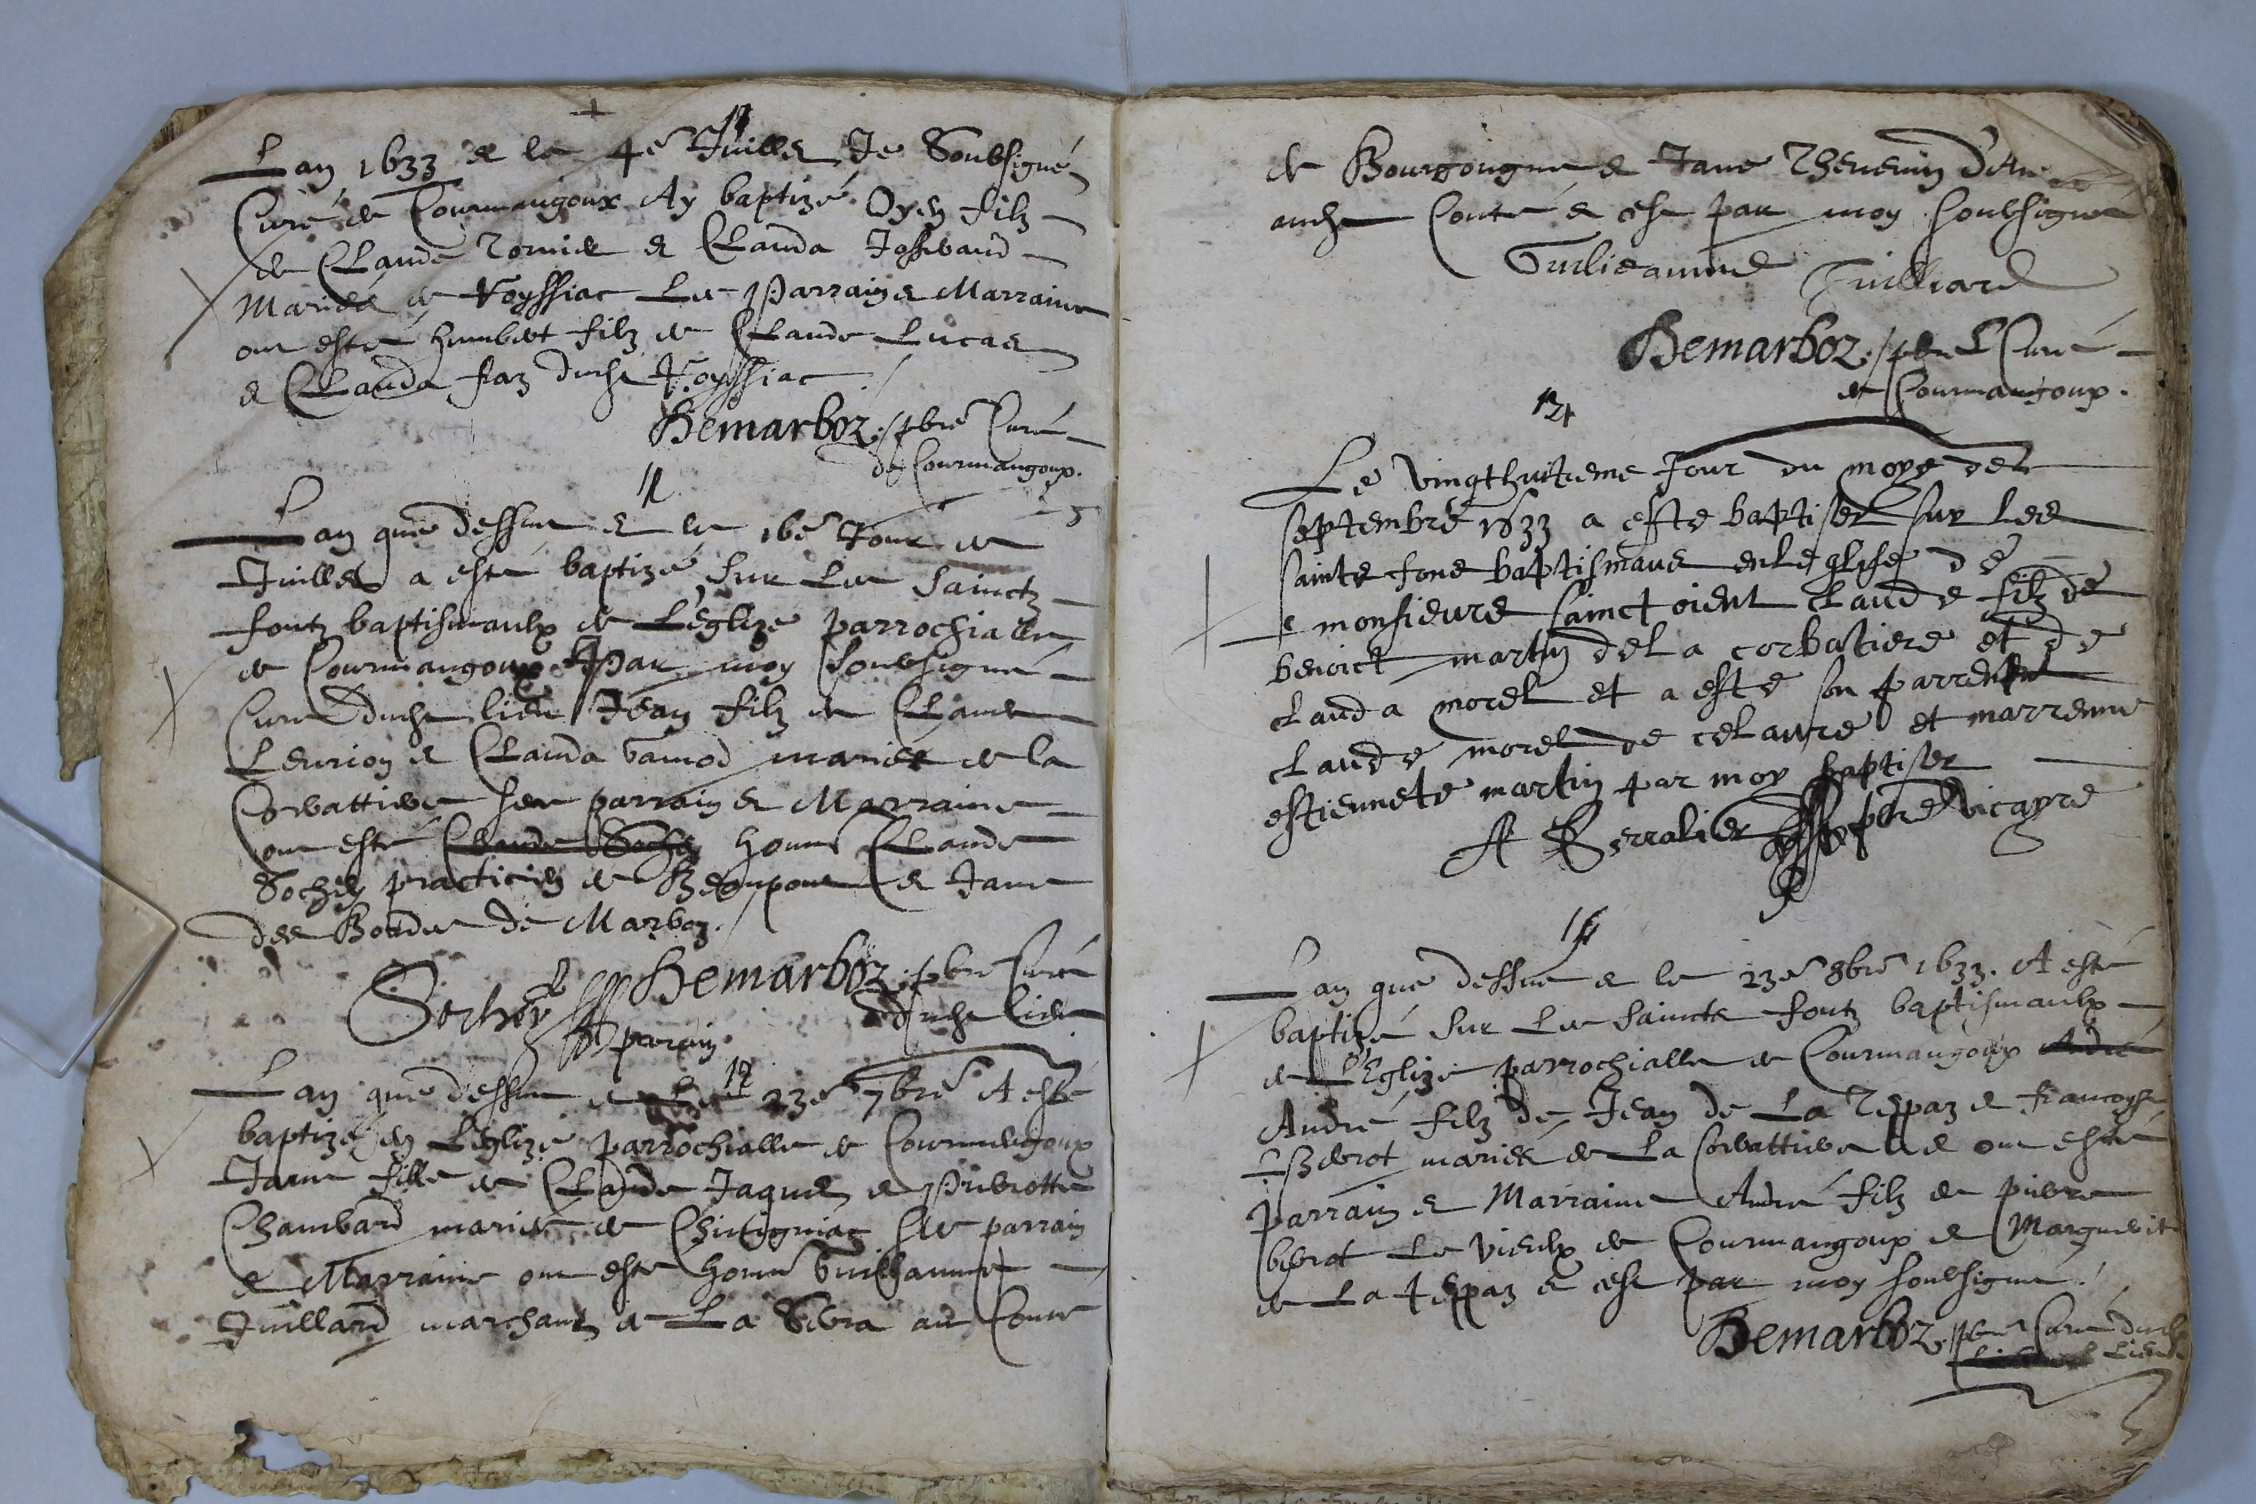 Lan 1633 & le 4e Juillet Je Soubsigné
Curé de Courmangoux Ay baptizé Oyen filz
de Claude Tornier & Clauda Josserand
Mariés de Royssiac Les Parrain & Marraine
ont esté humbert filz de Claude Lucas
& Clauda fiaz dudit Royssiac
Bemarboz, pbre Curé
de Courmangoux.
Lan que dessus & le 16e Jour de
Juillet a esté baptizé sur les sainctz
fontz baptismaulx de Leglize parrochialle
de Courmangoux Par moy soubsigné
Curé dudit lieu Jean filz de Claude
Leurion & Clauda mariés de la
Corbattiere ses parrain & Marraine
ont esté honne Claude
Sochey practicien de Beaupont & Jane
des Bordes de Marboz.
Bemarboz, pbre Curé
dudit lieu
Sochey parain
12
Lan que dessus & le 23e 7bre A esté
baptizé en Leglize parrochialle de Courmangoux
Jane fille de Claude Jaquet & Pierrotte
Chambard mariés de Chirignac Ses parrain
& Marraine ont esté honn Guillaume
Juillard marchant de La Serra au Conté
de Bourgongne & Jane Thevenin
audit Conté & cest par moy soubsigné
Guilleaume Juilliard
Bemarboz, pbre Curé
de Courmangoux.
Le vingthuitieme Jour du moys de
septembre 1633 a este baptiser sur les
sainte fons baptismaus en leglise de
monsieure sainct oient claude filz de
benoict martin de la corbatiere et de
clauda morel et a este son parrent
claude morel de celavre et marrenne
estiennete martin par moy baptiser
A Berralier pbre vicayre
Lan que dessus & le 23e 8bre 1633. A esté
baptizé sur les saincts fontz baptismaulx
de L'Eglize parrochialle de Courmangoux André
André filz de Jean de La Teppaz & francoyse
Berrot mariés de La Corbattiere & ont esté
parrain & Marraine André filz de pierre
berrot Le vieulx de Courmangoux & Marguerite
de La Teppaz & cest par moy soubsigné.
Bemarboz, pbre Curé dudit
Lieu